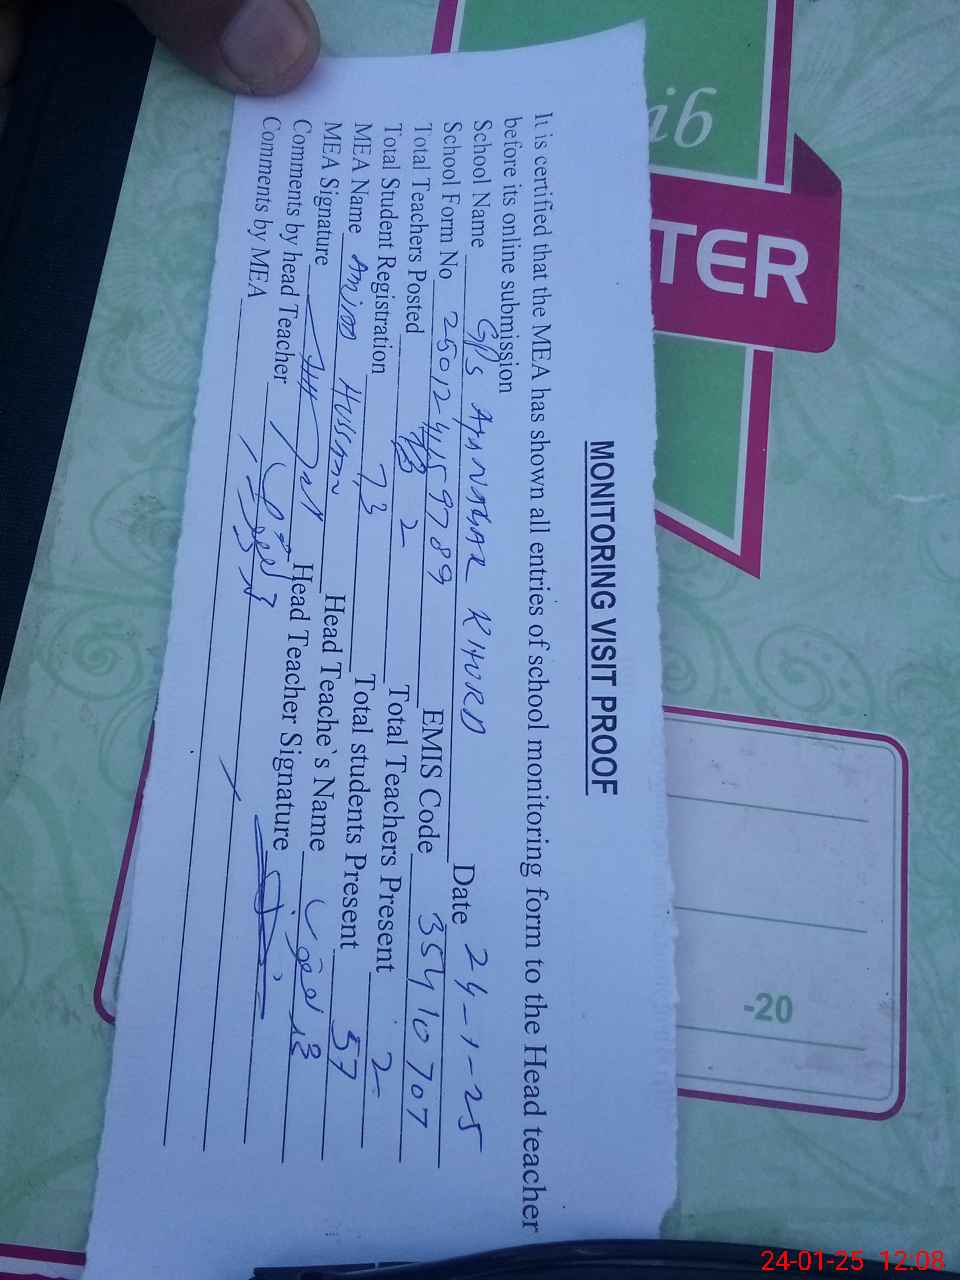 MONITORING VISIT PROOF
It is certified that the MEA has shown all entries of school monitoring form to the Head teacher
before its online submission
School Name GPS KHURD Date 24-1-25
School Form No 2501241159789 EMIS Code 35410707
Total Teachers Posted 2 Total Teachers Present 2
Total Student Registration 73 Total students Present 57
MEA Name Amjad Hussain Head Teache`s Name
MEA Signature Head Teacher Signature
Comments by head Teacher
Comments by MEA
TER
-20
24-01-25 12:08